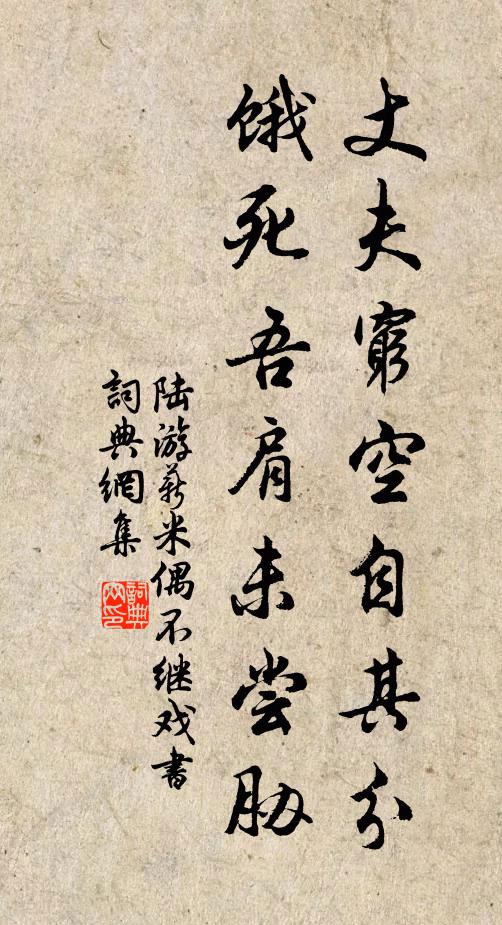 丈夫窮空自其分
餓死吾肩未尝胁
陆游薪米偶不继戏書
詞典網集
詞典網印